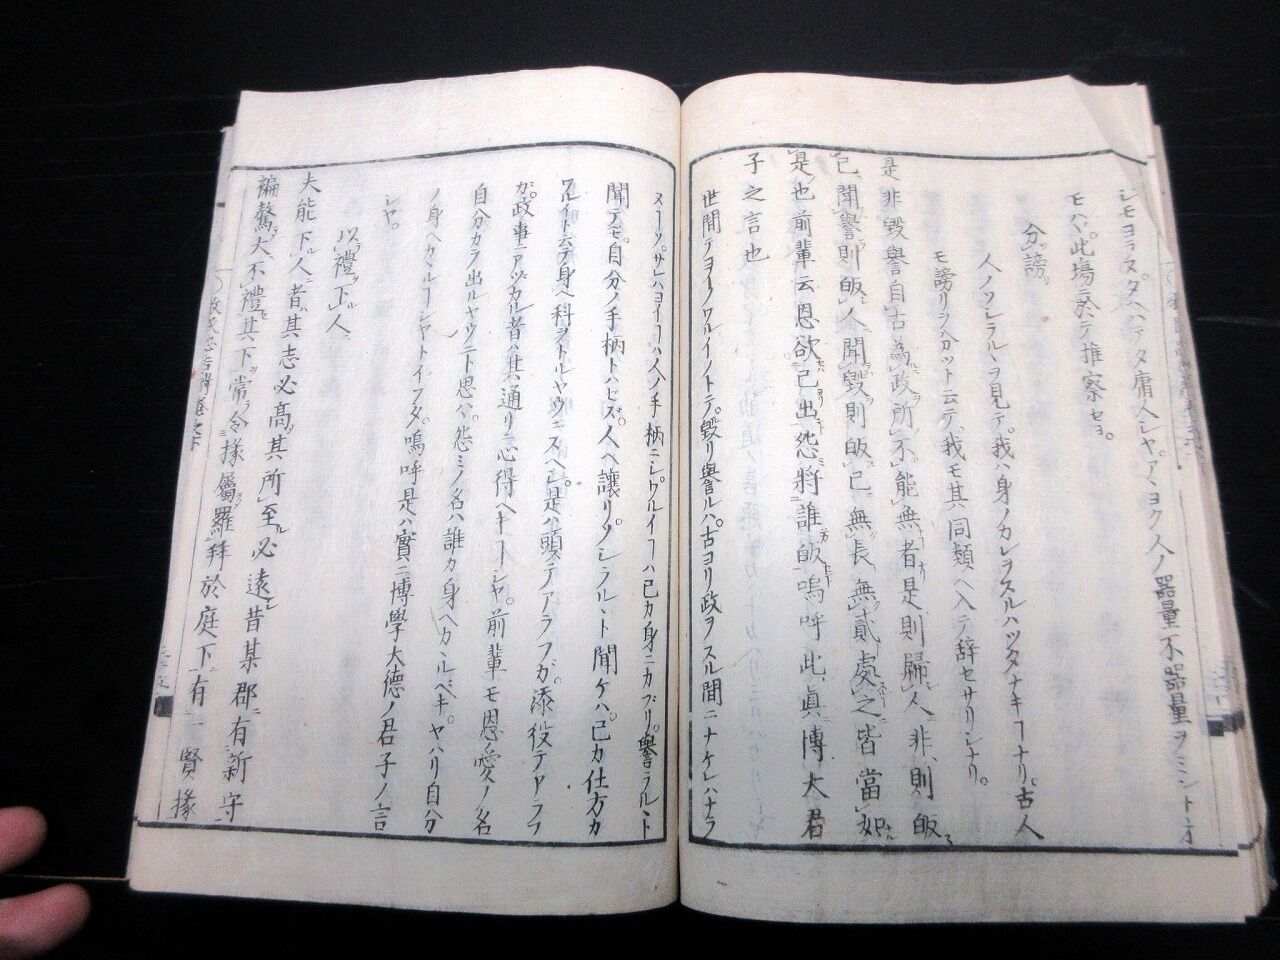 シモヨラヌタハヲタ庸人シヤ。アミヨク人ノ器量不器量ヲミント才
モハヾ此場ニ於テ推察セヨ。
分謗
人ノソシラルヽヲ見テ。我ハ身ノカレヲスルハツタナキヿナリ。古人
モ謗リヲ分ツト云テ。我モ其同類ヘ入テ辞セサリシナリ。
是非毀譽自古為政所不能無者是則歸人非則皈
己聞譽則皈人聞毀則皈己無長無貳處之皆當如
是也前輩云恩欲己出怨將誰皈嗚呼此真博大君
子之言也
世間テヨイノワルイノトテ。毀リ譽ルハ。古ヨリ政ヲスル間ニナケレハナラ
ヌヿソ。サレハヨイヿハ人ノ手柄ニシ。ワルイヿハ己カ身ニカブリ。譽ラルヽト
聞テモ。自分ノ手柄トハセズ。人ヘ讓リ。ソシラルヽト聞ケハ。己カ仕方カ
ワルイト云テ身ヘ科ヲトルヤウニスヘシ。是ハ頭テアラフガ。添役テアラフ
ガ。政事ニアツカル者ハ其通リニ心得ヘキヿシヤ。前輩モ恩ノ愛ノ名
自分カラ出ルヤウニト思ハヾ。怨ミノ名ハ誰カ身ヘカヽルベキ。ヤハリ自分
ノ身ヘカヽルヿシヤトイフタ。嗚呼是ハ實ニ博學大德ノ君子ノ言
シヤ。
以禮下人
夫能下人者其志必高其所至必遠昔某郡有新守
褊驁大不禮其下常令掾屬羅拜於庭下有一賢掾